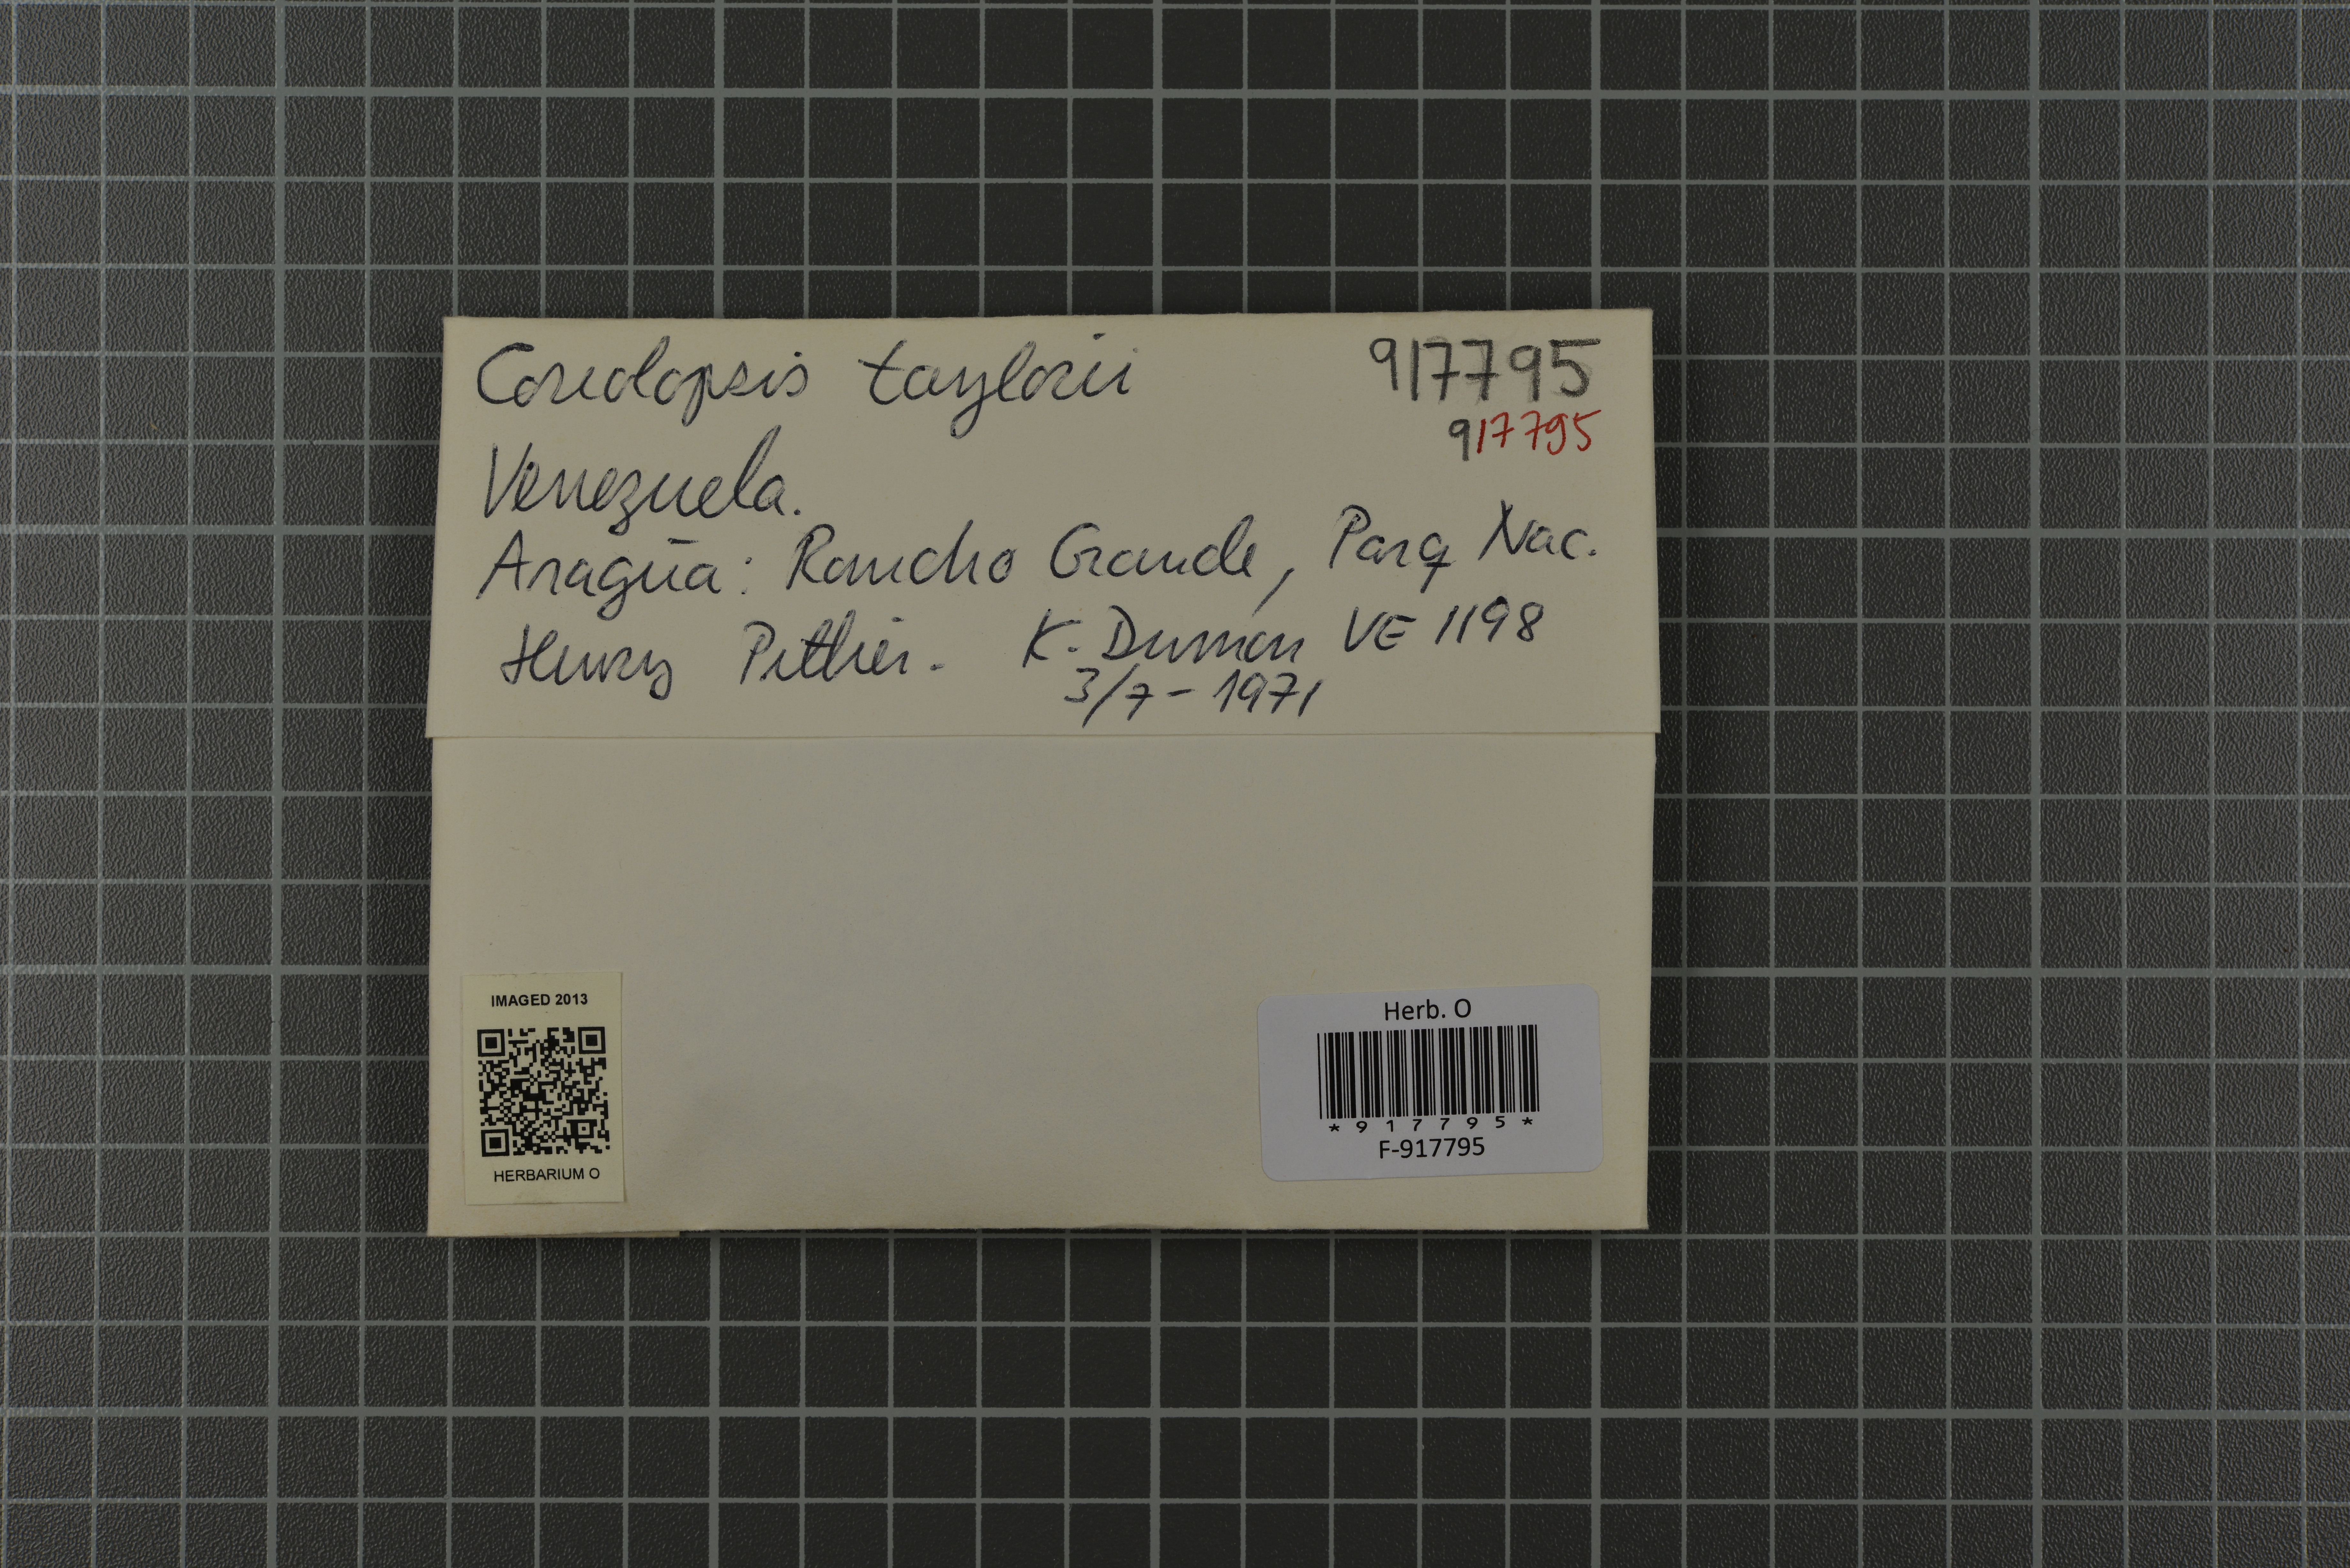 Coriolopsis taylorii
917795
917795
Venezuela.
Aragua: Rancho Grande, Parq Nac.
Henry Pittier. K. Dumon VE 1198
3/7-1971
IMAGED 2013
HERBARIUM O
Herb. O
*917795*
F-917795